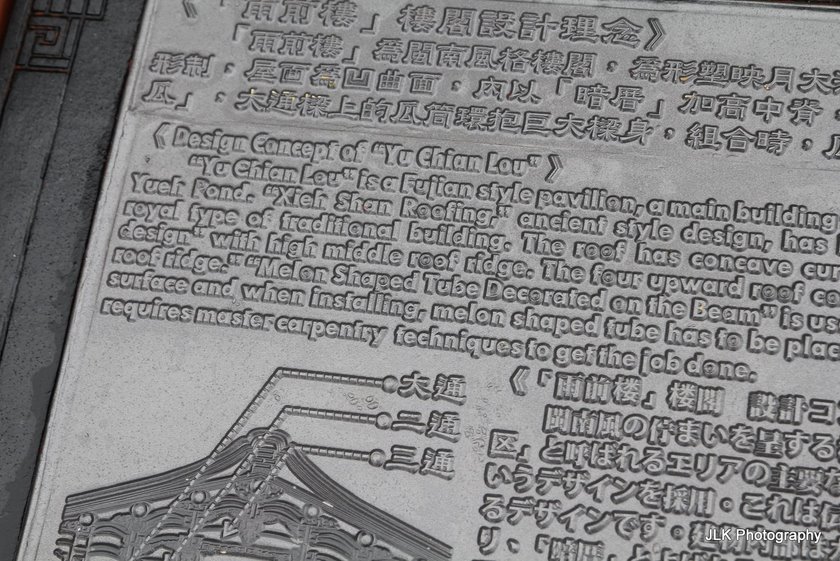 《「雨前樓」樓閣設計理念》
「雨前樓」為閩南風格樓閣，為形塑映月大
形制，屋面為凹曲面，內以「暗厝」加高中脊
瓜」，大通樑上的瓜筒環抱巨大樑身，組合時，
《 Design Concept of "Yu Chian Lou" 》
"Yu Chian Lou" is a Fujian style pavilion, a main building
Yueh Pond. "Xieh Shan Roofing," ancient style design, has
royal type of traditional building. The roof has concave cu
design" with high middle roof ridge. The four upward roof co
roof ridge." "Melon Shaped Tube Decorated on the Beam" is us
surface and when installing, melon shaped tube has to be plac
requires master carpentry techniques to get the job done.
大通
二通
三通
《「雨前楼」楼閣 設計コ
閩南風の佇まいを呈する
区」と呼ばれるエリアの主要
いうデザインを採用・これは
るデザインです・建物内部は
リ、「暗厝」
JLK Photography